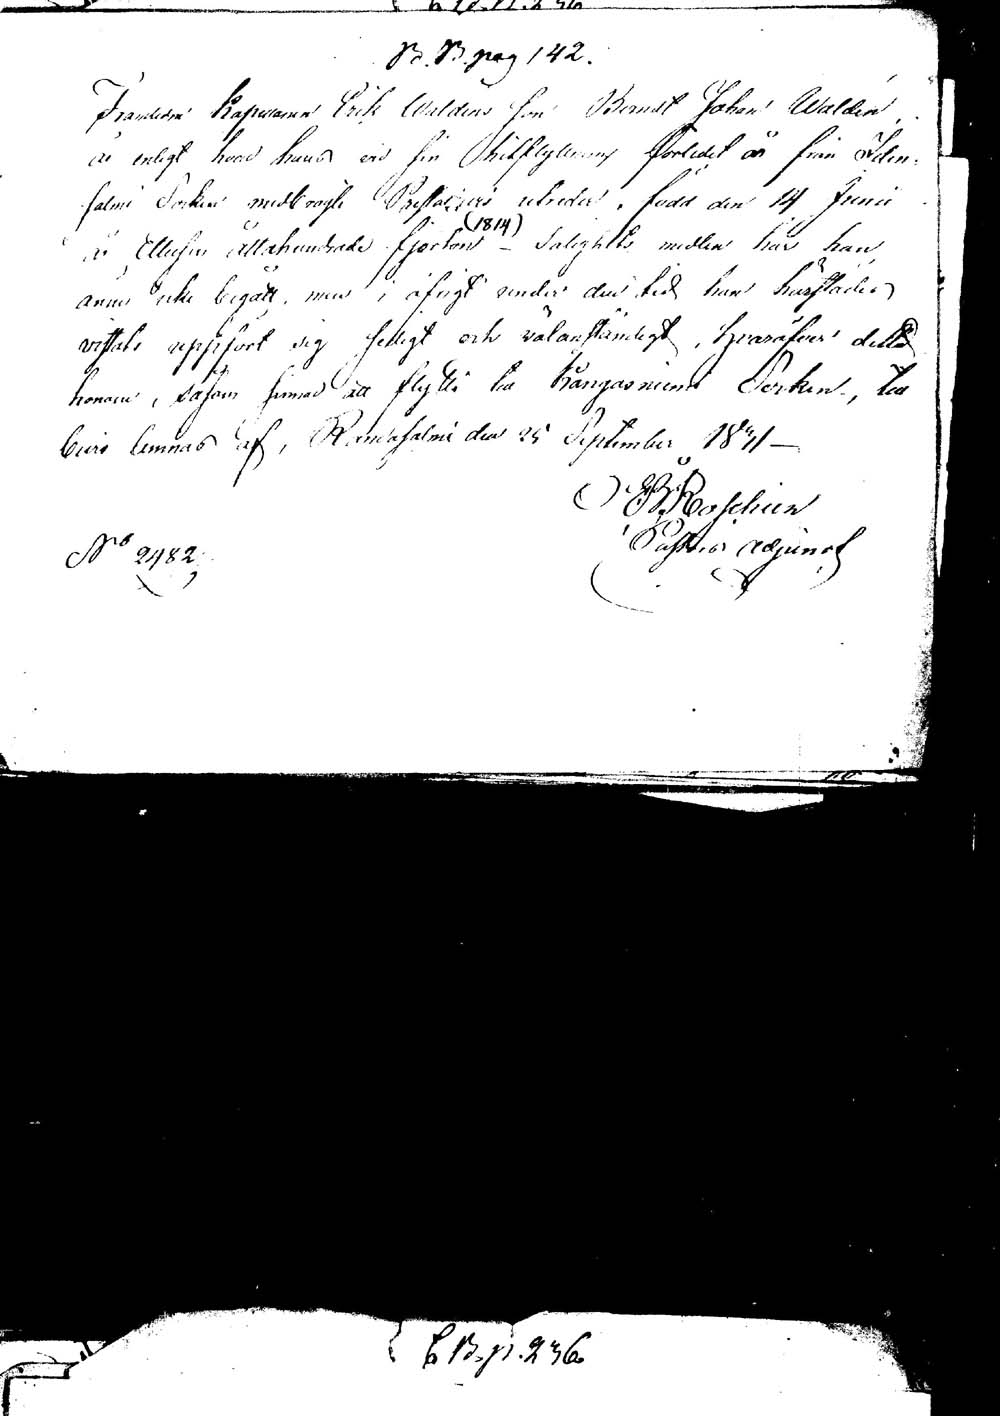 B. B. pag 142.
Framledne Kapellanen Erik Waldens son Berndt Johan Walden,
är enligt hvad hans vid sin hitflyttning förledet år från Iden-
salmi Socken medbragte Prestbevis utreder, född den 14 Junii
år Ettusen åttahundrade fjorton (1814) – Salighets medlen har han
ännu icke begått, men i öfrigt under den tid han härstädes
vistats uppfört sig stilligt och välanständigt, hvaröfver detta
honom, såsom sinnad att flytta till Kangasniemi Socken, till
bevis lemnas af, Randasalmi den 25 September 1831 –
Roschier
Pastors adjunct
No 2482
B. p. 236